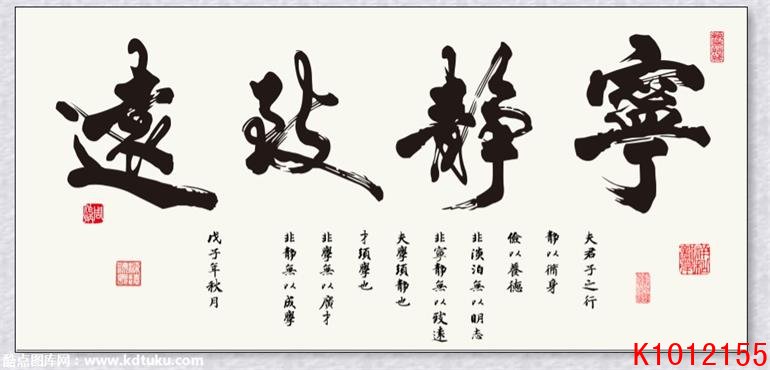 寧靜致遠
夫君子之行
靜以脩身
儉以養德
非淡泊無以明志
非寧靜無以致遠
夫學須靜也
才須學也
非學無以廣才
非靜無以成學
戊子年秋月
酷点图库网:www.kdtuku.com
K1012155